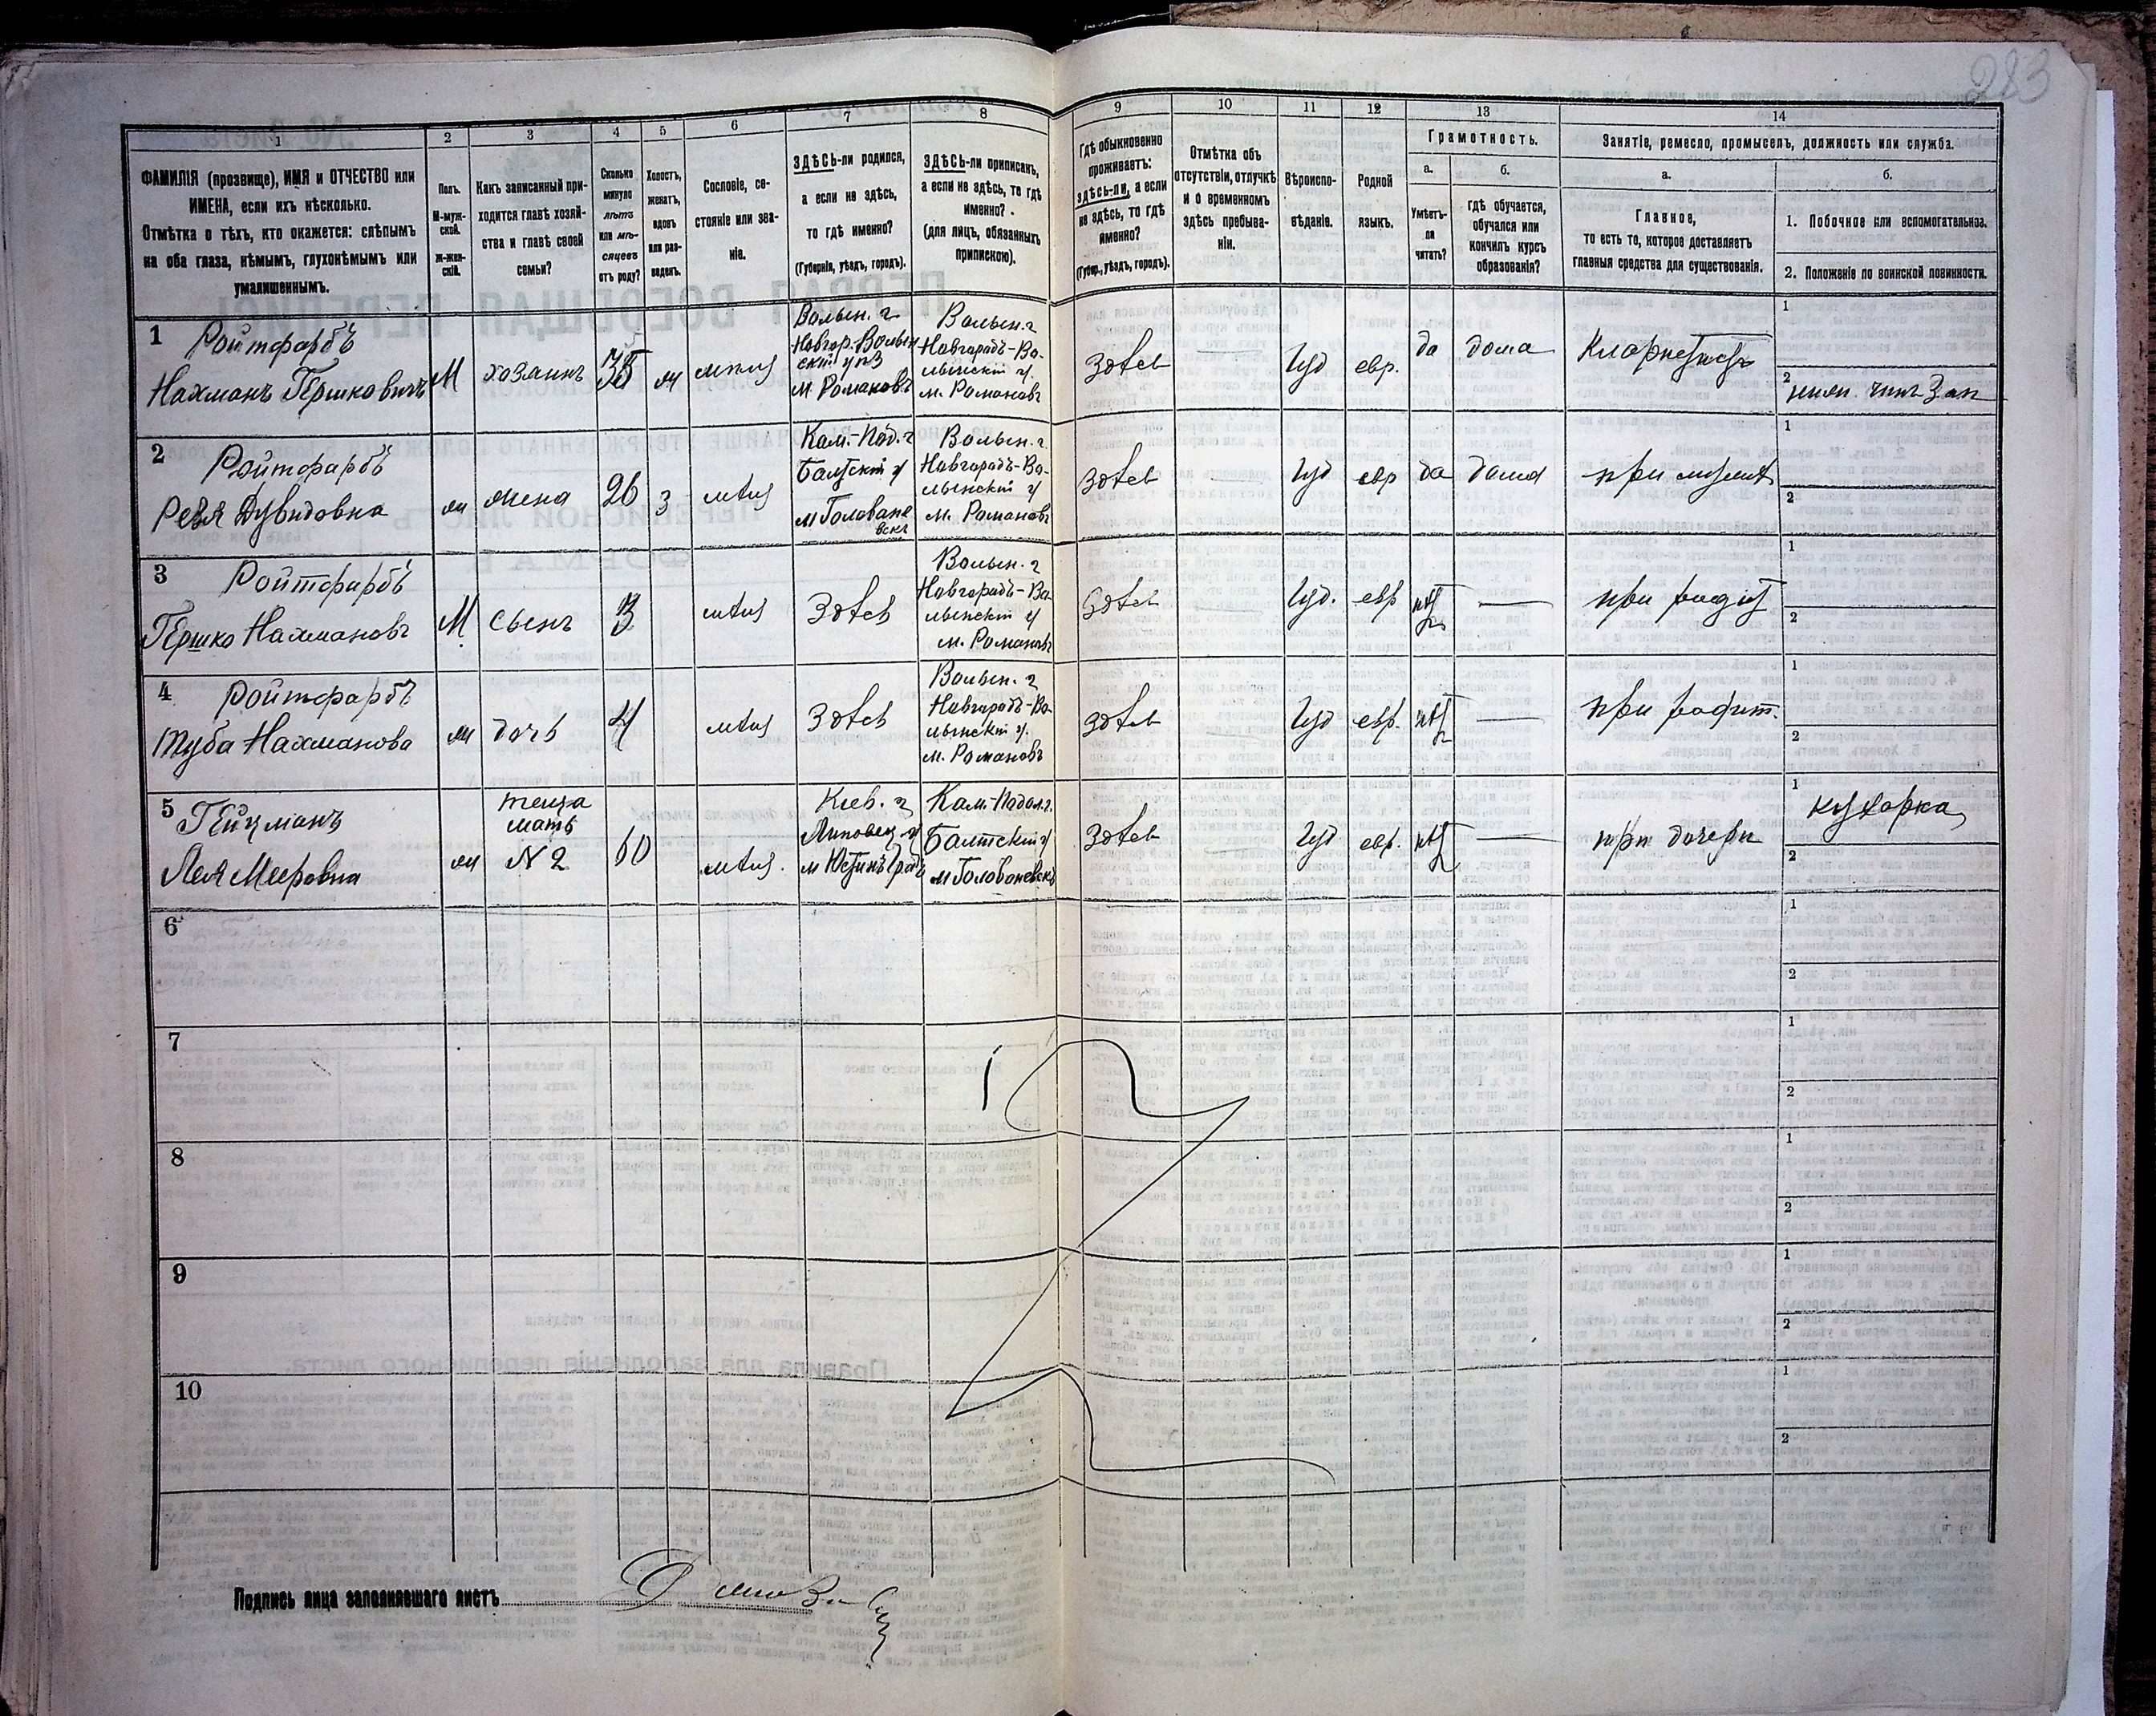 283
1
2
3
4
5
6
7
8
9
10
11
12
13
14
ФАМИЛІЯ (прозвище), ИМЯ и ОТЧЕСТВО или
ИМЕНА, если ихъ нѣсколько.
Отмѣтка о тѣхъ, кто окажется: слѣпымъ
на оба глаза, нѣмымъ, глухонѣмымъ или
умалишеннымъ.
Полъ.
М-муж-
ской.
Ж-жен-
скій.
Какъ записанный при-
ходится главѣ хозяй-
ства и главѣ своей
семьи?
Сколько
минуло
лѣтъ
или мѣ-
сяцевъ
отъ роду?
Холостъ,
женатъ,
вдовъ
или раз-
веденъ.
Сословіе, со-
стояніе или зва-
ніе.
ЗДѢСЬ-ли родился,
а если не здѣсь,
то гдѣ именно?
(Губернія, уѣздъ, городъ).
ЗДѢСЬ-ли приписанъ,
а если не здѣсь, то гдѣ
именно?
(для лицъ, обязанныхъ
припискою).
Гдѣ обыкновенно
проживаетъ:
здѣсь-ли, а если
не здѣсь, то гдѣ
именно?
(Губер., уѣздъ, городъ).
Отмѣтка объ
отсутствіи, отлучкѣ
и о временномъ
здѣсь пребыва-
ніи.
Вѣроиспо-
вѣданіе.
Родной
языкъ.
Грамотность.
а.
Умѣетъ-
ли
читать?
б.
гдѣ обучается,
обучался или
кончилъ курсъ
образованія?
Занятіе, ремесло, промыселъ, должность или служба.
а.
Главное,
то есть то, которое доставляетъ
главныя средства для существованія.
б.
1. Побочное или вспомогательное.
2. Положеніе по воинской повинности.
1
Ройтфарбъ
Нахманъ Гершковичъ
М
хозаинъ
35
ж
мѣщ
Волын. г
Новгор. Волын
скій у
м Романовъ
Волын. г
Новгорадъ-Во-
лынскій у.
м. Романовъ
Здѣсь
Іуд
евр.
да
дома
Кларнетистъ
1
2
нижн. чинъ Зап
2
Ройтфарбъ
Рейя Дувидовна
ж
жена
26
З
мѣщ
Кам.-Под. г
Балтскій у
м Головане
вскъ
Волын. г.
Новгорадъ-Во-
лынскій у
м. Романовъ
Здѣсь
Іуд
евр
да
дома
при мужѣ
1
2
3
Ройтфарбъ
Гершко Нахмановъ
М
сынъ
мѣщ
Здѣсь
Волын. г
Новгорадъ-Во-
лынскій у
м. Романовъ
Здѣсь
Іуд.
евр
нѣт
при родит
1
2
4
Ройтфарбъ
Туба Нахманова
ж
дочь
4
мѣщ
Здѣсь
Волын. г
Новгорадъ-Во-
лынскій у.
м. Романовъ
Здѣсь
Іуд
евр.
нѣт
при родит.
1
2
5
Гейцманъ
Лея Мееровна
ж
теща
мать
N 2
60
мѣщ.
Кіев. г
Липовец у
м Юстинъ градъ
Кам.-Подол. г.
Балтскій у
м Голованевскъ
Здѣсь
Іуд
евр.
нѣт
при дочери
1
кухарка
2
6
1
2
7
1
2
8
1
2
9
1
2
10
1
2
Подпись лица заполнявшаго листъ